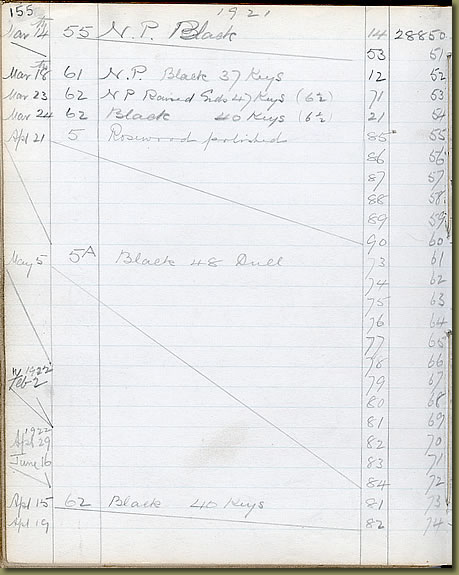 155 1921
Mar 14 55 N.P. Black 14 28850
53 51
Mar 18 61 N.P. Black 37 Keys 12 52
Mar 23 62 N P Raised Ends 47 Keys (6½) 71 53
Mar 24 62 Black 40 Keys (6½) 21 54
Apl 21 5 Rosewood polished 85 55
86 56
87 57
88 58
89 59
90 60
May 5 5A Black 48 Dull 73 61
74 62
75 63
76 64
77 65
78 66
1922
Feb 2 79 67
80 68
1922 81 69
Apl 29 82 70
June 16 83 71
84 72
Apl 15 62 Black 40 Keys 81 73
Apl 19 82 74